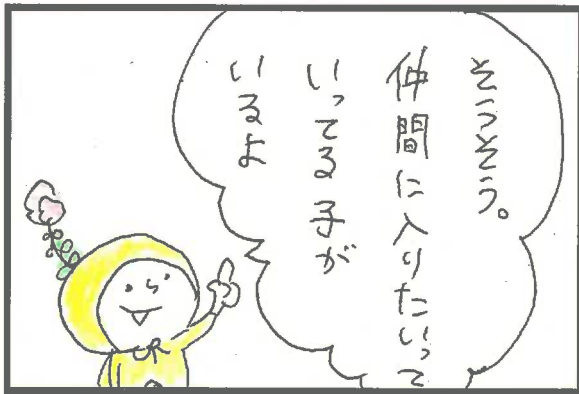 そうそう。
仲間に入りたいって
いってる子が
いるよ